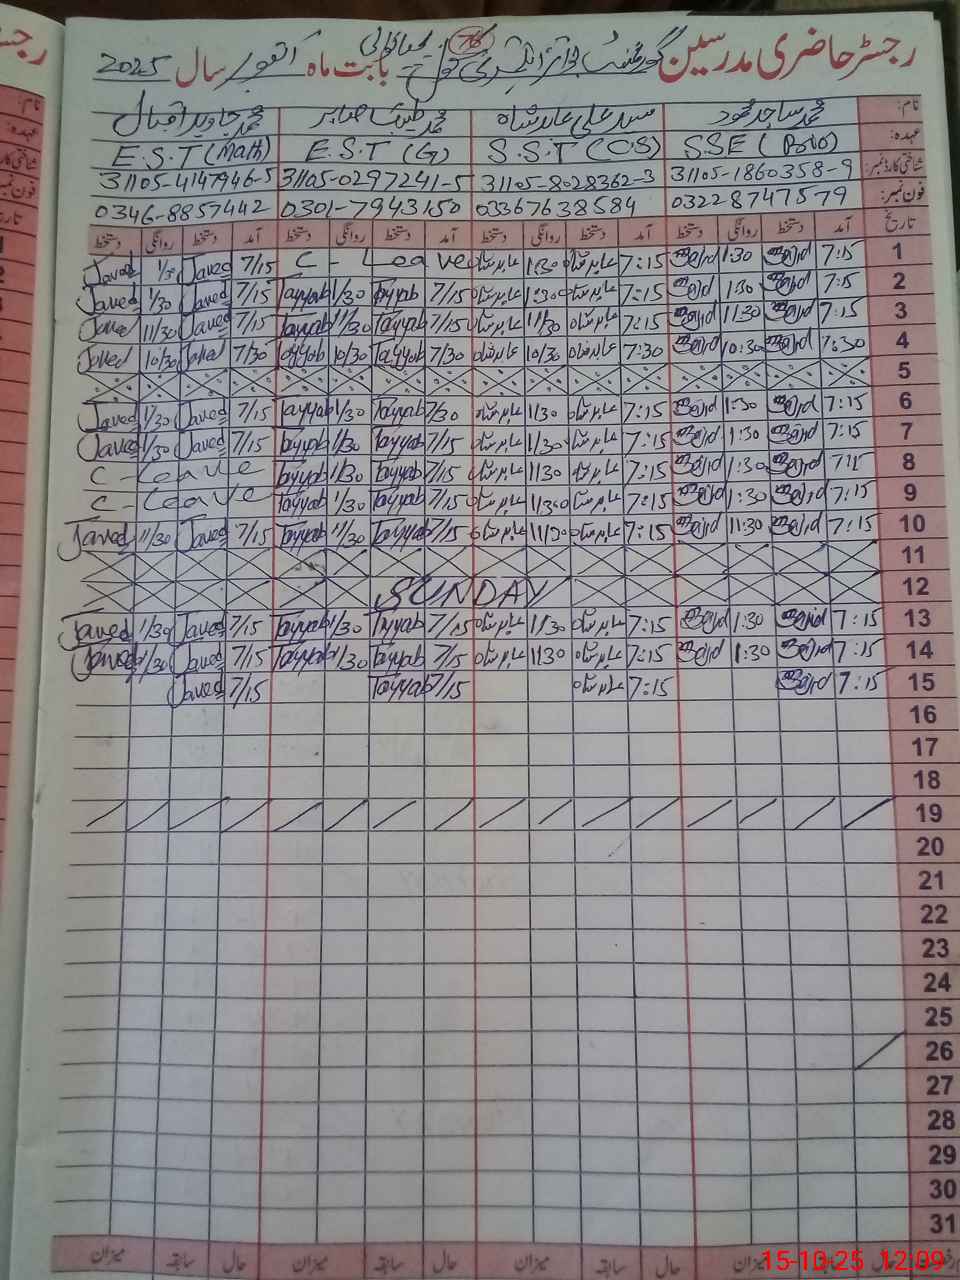 رجسٹر حاضری مدرسین گورنمنٹ بوائز ایلیمنٹری سکول بابت ماہ اکتوبر سال 2025
76
نام: محمد ساجد محمود سید علی عابد شاہ محمد طیب صابر محمد جاوید اقبال
عہدہ: SSE (Bio) S.S.T (CS) E.S.T (G) E.S.T (Math)
شناختی کارڈ نمبر: 31105-1860358-9 31105-8028362-3 31105-0297241-5 31105-4147946-5
فون نمبر: 03228747579 03367638584 0301-7943150 0346-8857442
تاریخ آمد دستخط روانگی دستخط آمد دستخط روانگی دستخط آمد دستخط روانگی دستخط آمد دستخط روانگی دستخط
1 7:15 Sajid 1:30 Sajid 7:15 عابد شاہ 1:30 عابد شاہ C - Leave 7/15 Javed 1/30 Javed
2 7:15 Sajid 1:30 Sajid 7:15 عابد شاہ 1:30 عابد شاہ 7/15 Tayyab 1/30 Tayyab 7/15 Javed 1/30 Javed
3 7:15 Sajid 11:30 Sajid 7:15 عابد شاہ 11/30 عابد شاہ 7/15 Tayyab 11/30 Tayyab 7/15 Javed 11/30 Javed
4 7:30 Sajid 10:30 Sajid 7:30 عابد شاہ 10/30 عابد شاہ 7/30 Tayyab 10/30 Tayyab 7/30 Javed 10/30 Javed
5
6 7:15 Sajid 1:30 Sajid 7:15 عابد شاہ 1:30 عابد شاہ 7/30 Tayyab 1/30 Tayyab 7/15 Javed 1/30 Javed
7 7:15 Sajid 1:30 Sajid 7:15 عابد شاہ 1:30 عابد شاہ 7/15 Tayyab 1/30 Tayyab 7/15 Javed 1/30 Javed
8 7:15 Sajid 1:30 Sajid 7:15 عابد شاہ 1:30 عابد شاہ 7/15 Tayyab 1/30 Tayyab C - Leave
9 7:15 Sajid 1:30 Sajid 7:15 عابد شاہ 1:30 عابد شاہ 7/15 Tayyab 1/30 Tayyab C - Leave
10 7:15 Sajid 11:30 Sajid 7:15 عابد شاہ 11/30 عابد شاہ 7/15 Tayyab 11/30 Tayyab 7/15 Javed 11/30 Javed
11
12 SUNDAY
13 7:15 Sajid 1:30 Sajid 7:15 عابد شاہ 1/30 عابد شاہ 7/15 Tayyab 1/30 Tayyab 7/15 Javed 1/30 Javed
14 7:15 Sajid 1:30 Sajid 7:15 عابد شاہ 1:30 عابد شاہ 7/15 Tayyab 1/30 Tayyab 7/15 Javed 1/30 Javed
15 7:15 Sajid 7:15 عابد شاہ 7/15 Tayyab 7/15 Javed
16
17
18
19
20
21
22
23
24
25
26
27
28
29
30
31
حال سابقہ میزان حال سابقہ میزان حال سابقہ میزان
15-10-25 12:09